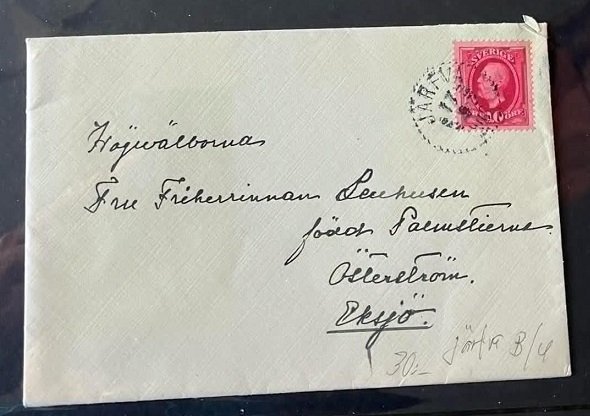 SVERIGE
10 ÖRE
Högwälborna
Fru Friherrinnan Leuhusen
född Palmstierna.
Österström.
Eksjö.
30:-
Järfva B/4